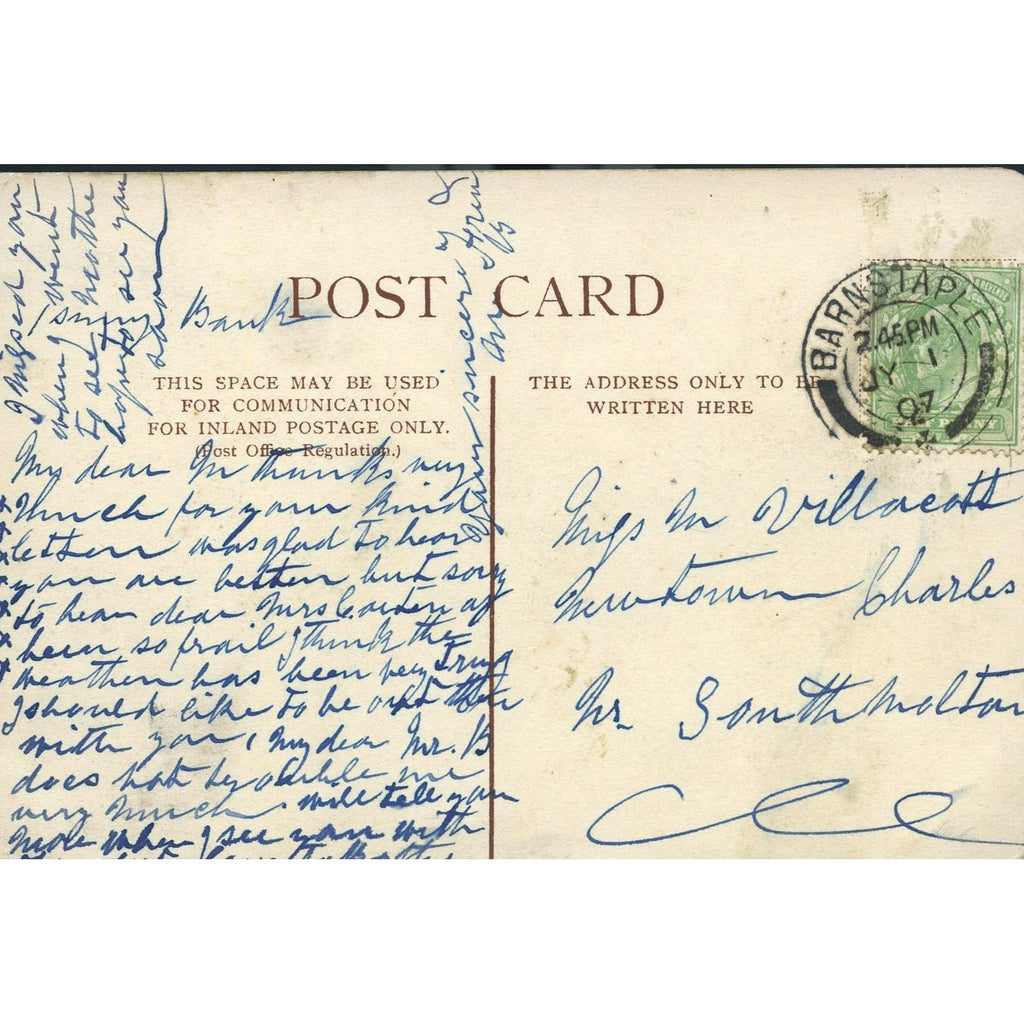 POST CARD
THIS SPACE MAY BE USED
FOR COMMUNICATION
FOR INLAND POSTAGE ONLY.
(Post Office Regulation.)
THE ADDRESS ONLY TO BE
WRITTEN HERE
BARNSTAPLE
2.45 PM
JY 1
07
Bank
My dear M thanks very
Much for your kind
letter was glad to hear
you are better but sorry
to hear dear Mrs
been so frail I think the
weather has been very
I should like to be out
with you My dear Mr. B
does not me
very much will tell you
more when I see you with
I Missed you
when I went
to see Mothe
hope to see you
soon
yours sincerely
Miss M Villacott
Newtown Charles
Nr South Molton